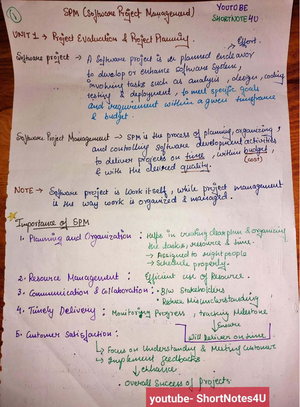 1
SPM (Software Project Management)
YOUTUBE
SHORTNOTE4U
UNIT 1 → Project Evaluation & Project Planning.
Effort.
Software project → A Software project is a planned endeavor
to develop or enhance software system,
involving tasks such as analysis, design, coding
testing & deployment, to meet specific goals
and requirement within a given timeframe
& budget.
Software Project Management → SPM is the process of planning, organizing,
and controlling software development activities
to deliver projects on time, within budget,
& with the desired quality. (cost)
NOTE → Software project is work itself, while project management
is the way work is organized & managed.
Importance of SPM
1. Planning and Organization : Helps in creating clear plan & organizing
the tasks, resource & time.
→ Assigned to right people
→ Schedule properly.
2. Resource Management : Efficient use of Resource.
3. Communication & Collaboration : B/w Stakeholders
Reduce Misunderstanding
4. Timely Delivery : Monitoring Progress, tracking Milestone
↓ Ensure
Will deliver on time
5. Customer Satisfaction :
→ Focus on Understanding & Meeting Customer
→ Implement feedbacks
↓ enhance
. Overall Success of Projects
youtube- ShortNotes4U